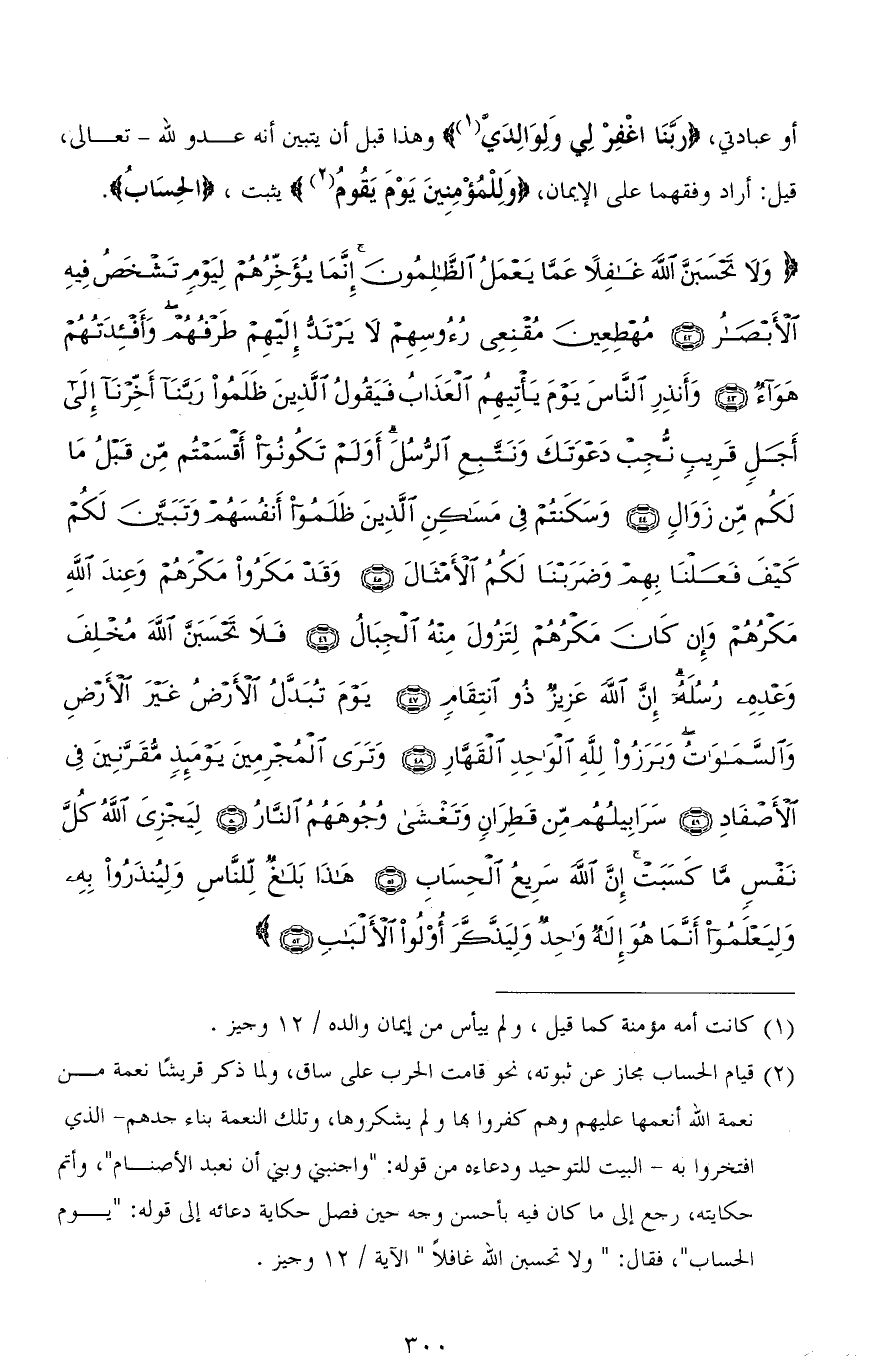 أو عبادتي، ﴿رَبَّنَا اغْفِرْ لِي وَلِوَالِدَيَّ(١)﴾ وهذا قبل أن يتبين أنه عـــدو لله – تعـــالى،
قيل: أراد وفقهما على الإيمان، ﴿وَلِلْمُؤْمِنِينَ يَوْمَ يَقُومُ(٢)﴾ يثبت ، ﴿الحِسَابُ﴾.
﴿ وَلَا تَحْسَبَنَّ ٱللَّهَ غَـٰفِلًا عَمَّا يَعْمَلُ ٱلظَّـٰلِمُونَ ۚ إِنَّمَا يُؤَخِّرُهُمْ لِيَوْمٍ تَشْخَصُ فِيهِ
ٱلْأَبْصَـٰرُ ﴿٤٢﴾ مُهْطِعِينَ مُقْنِعِى رُءُوسِهِمْ لَا يَرْتَدُّ إِلَيْهِمْ طَرْفُهُمْ ۖ وَأَفْـِٔدَتُهُمْ
هَوَآءٌ ﴿٤٣﴾ وَأَنذِرِ ٱلنَّاسَ يَوْمَ يَأْتِيهِمُ ٱلْعَذَابُ فَيَقُولُ ٱلَّذِينَ ظَلَمُوا۟ رَبَّنَآ أَخِّرْنَآ إِلَىٰٓ
أَجَلٍ قَرِيبٍ نُّجِبْ دَعْوَتَكَ وَنَتَّبِعِ ٱلرُّسُلَ ۗ أَوَلَمْ تَكُونُوٓا۟ أَقْسَمْتُم مِّن قَبْلُ مَا
لَكُم مِّن زَوَالٍ ﴿٤٤﴾ وَسَكَنتُمْ فِى مَسَـٰكِنِ ٱلَّذِينَ ظَلَمُوٓا۟ أَنفُسَهُمْ وَتَبَيَّنَ لَكُمْ
كَيْفَ فَعَلْنَا بِهِمْ وَضَرَبْنَا لَكُمُ ٱلْأَمْثَالَ ﴿٤٥﴾ وَقَدْ مَكَرُوا۟ مَكْرَهُمْ وَعِندَ ٱللَّهِ
مَكْرُهُمْ وَإِن كَانَ مَكْرُهُمْ لِتَزُولَ مِنْهُ ٱلْجِبَالُ ﴿٤٦﴾ فَلَا تَحْسَبَنَّ ٱللَّهَ مُخْلِفَ
وَعْدِهِۦ رُسُلَهُۥٓ ۗ إِنَّ ٱللَّهَ عَزِيزٌ ذُو ٱنتِقَامٍ ﴿٤٧﴾ يَوْمَ تُبَدَّلُ ٱلْأَرْضُ غَيْرَ ٱلْأَرْضِ
وَٱلسَّمَـٰوَٰتُ ۖ وَبَرَزُوا۟ لِلَّهِ ٱلْوَٰحِدِ ٱلْقَهَّارِ ﴿٤٨﴾ وَتَرَى ٱلْمُجْرِمِينَ يَوْمَئِذٍ مُّقَرَّنِينَ فِى
ٱلْأَصْفَادِ ﴿٤٩﴾ سَرَابِيلُهُم مِّن قَطِرَانٍ وَتَغْشَىٰ وُجُوهَهُمُ ٱلنَّارُ ﴿٥٠﴾ لِيَجْزِىَ ٱللَّهُ كُلَّ
نَفْسٍ مَّا كَسَبَتْ ۚ إِنَّ ٱللَّهَ سَرِيعُ ٱلْحِسَابِ ﴿٥١﴾ هَـٰذَا بَلَـٰغٌ لِّلنَّاسِ وَلِيُنذَرُوا۟ بِهِۦ
وَلِيَعْلَمُوٓا۟ أَنَّمَا هُوَ إِلَـٰهٌ وَٰحِدٌ وَلِيَذَّكَّرَ أُو۟لُوا۟ ٱلْأَلْبَـٰبِ ﴿٥٢﴾ ﴾
(١) كانت أمه مؤمنة كما قيل ، ولم ييأس من إيمان والده / ١٢ وجيز .
(٢) قيام الحساب مجاز عن ثبوته، نحو قامت الحرب على ساق، ولما ذكر قريشًا نعمة مـــن
نعمة الله أنعمها عليهم وهم كفروا بها ولم يشكروها، وتلك النعمة بناء جدهم– الذي
افتخروا به – البيت للتوحيد ودعاءه من قوله: "واجنبني وبني أن نعبد الأصنـــام"، وأتم
حكايته، رجع إلى ما كان فيه بأحسن وجه حين فصل حكاية دعائه إلى قوله: "يـــوم
الحساب"، فقال: " ولا تحسبن الله غافلاً " الآية / ١٢ وجيز .
٣٠٠